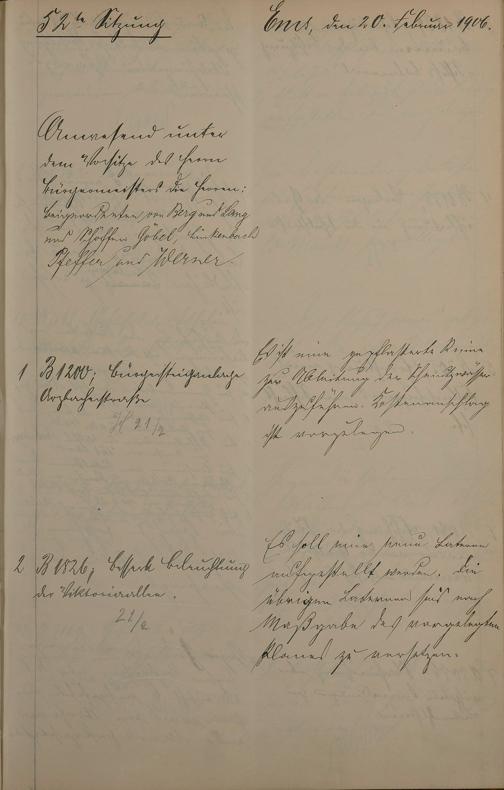 52te Sitzung
Ems, den 20. Februar 1906.
Anwesend unter
dem Vorsitze des Herrn
Bürgermeisters die Herren:
Beigeordneten von Berg und Lang
und Schöffen Göbel, Linkenbach
Pfeffer und Werner.
1 B 1200; Bürgersteiganlage
Arzbacherstraße
21/2
Es ist eine gepflasterte Rinne
zur Ableitung der
auszuführen. Kostenanschlag
ist vorzulegen.
2 B 1526; bessere Beleuchtung
der Viktoriaallee.
22/2
Es soll eine neue Laterne
aufgestellt werden. Die
übrigen Laternen sind nach
Maßgabe des vorgelegten
Planes zu versetzen.